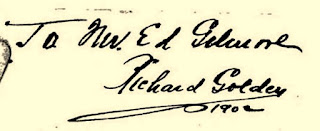 To Mr. Ed Gilmore
Richard Golden
1902